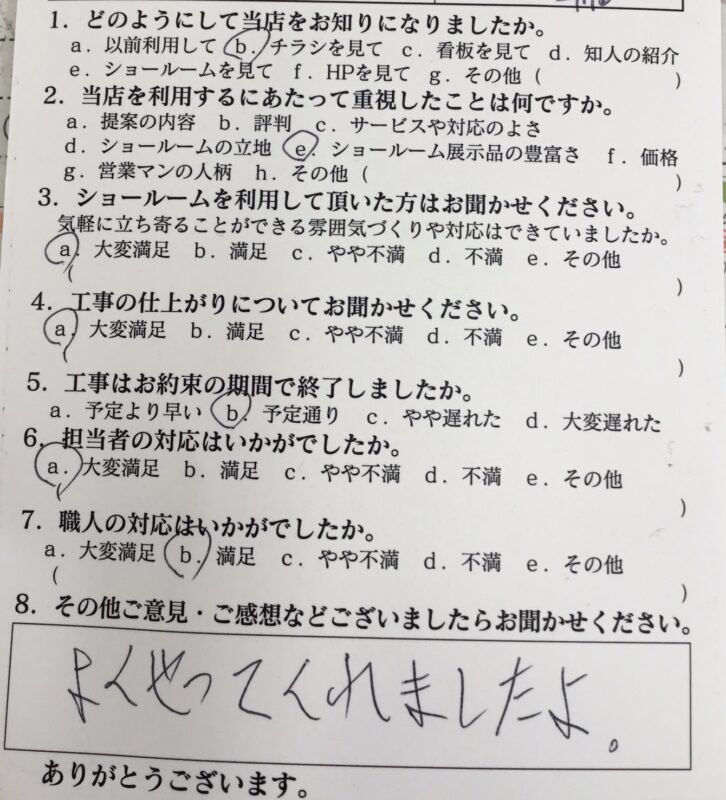 1．どのようにして当店をお知りになりましたか。
a．以前利用して b．チラシを見て c．看板を見て d．知人の紹介
e．ショールームを見て f．HPを見て g．その他（　　　　　　）
2．当店を利用するにあたって重視したことは何ですか。
a．提案の内容 b．評判 c．サービスや対応のよさ
d．ショールームの立地 e．ショールーム展示品の豊富さ f．価格
g．営業マンの人柄 h．その他（　　　　　　）
3．ショールームを利用して頂いた方はお聞かせください。
気軽に立ち寄ることができる雰囲気づくりや対応はできていましたか。
a．大変満足 b．満足 c．やや不満 d．不満 e．その他
（　　　　　　）
4．工事の仕上がりについてお聞かせください。
a．大変満足 b．満足 c．やや不満 d．不満 e．その他
（　　　　　　）
5．工事はお約束の期間で終了しましたか。
a．予定より早い b．予定通り c．やや遅れた d．大変遅れた
6．担当者の対応はいかがでしたか。
a．大変満足 b．満足 c．やや不満 d．不満 e．その他
（　　　　　　）
7．職人の対応はいかがでしたか。
a．大変満足 b．満足 c．やや不満 d．不満 e．その他
（　　　　　　）
8．その他ご意見・ご感想などございましたらお聞かせください。
よくやってくれましたよ。
ありがとうございます。